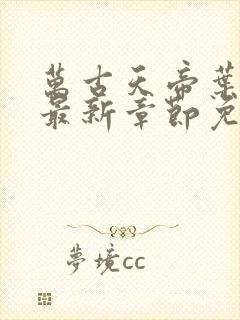 萬古天帝葉
最新章節免
夢境cc